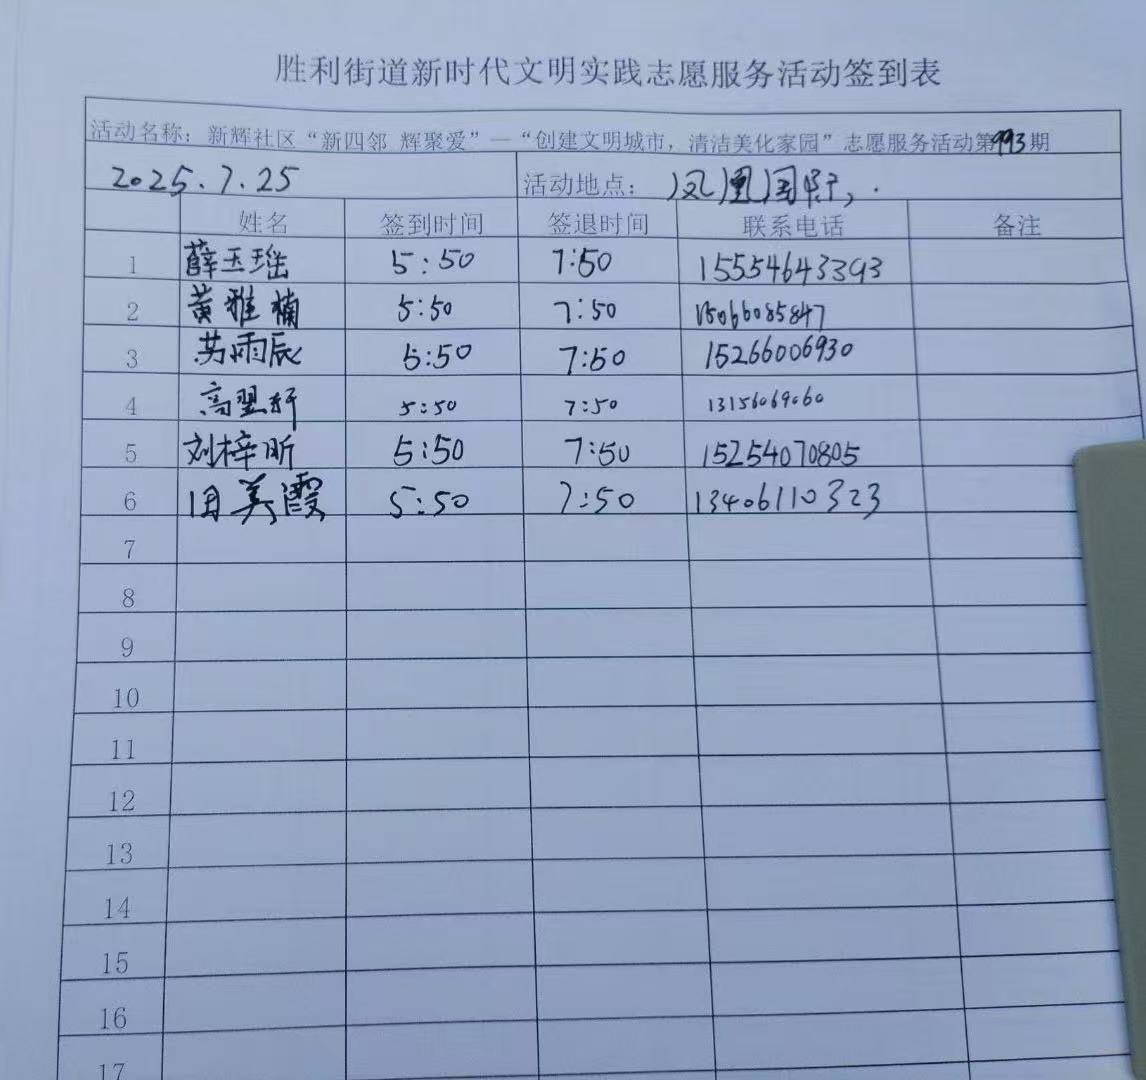 胜利街道新时代文明实践志愿服务活动签到表
活动名称：新辉社区“新四邻 辉聚爱”—“创建文明城市，清洁美化家园”志愿服务活动第993期
2025.7.25 活动地点：凤凰国际,.
姓名 签到时间 签退时间 联系电话 备注
1 薛玉瑶 5:50 7:50 15554643393
2 黄雅楠 5:50 7:50 15066085847
3 苏雨辰 5:50 7:50 15266006930
4 高翌轩 5:50 7:50 13156069060
5 刘梓昕 5:50 7:50 15254070805
6 田美霞 5:50 7:50 13406110323
7
8
9
10
11
12
13
14
15
16
17